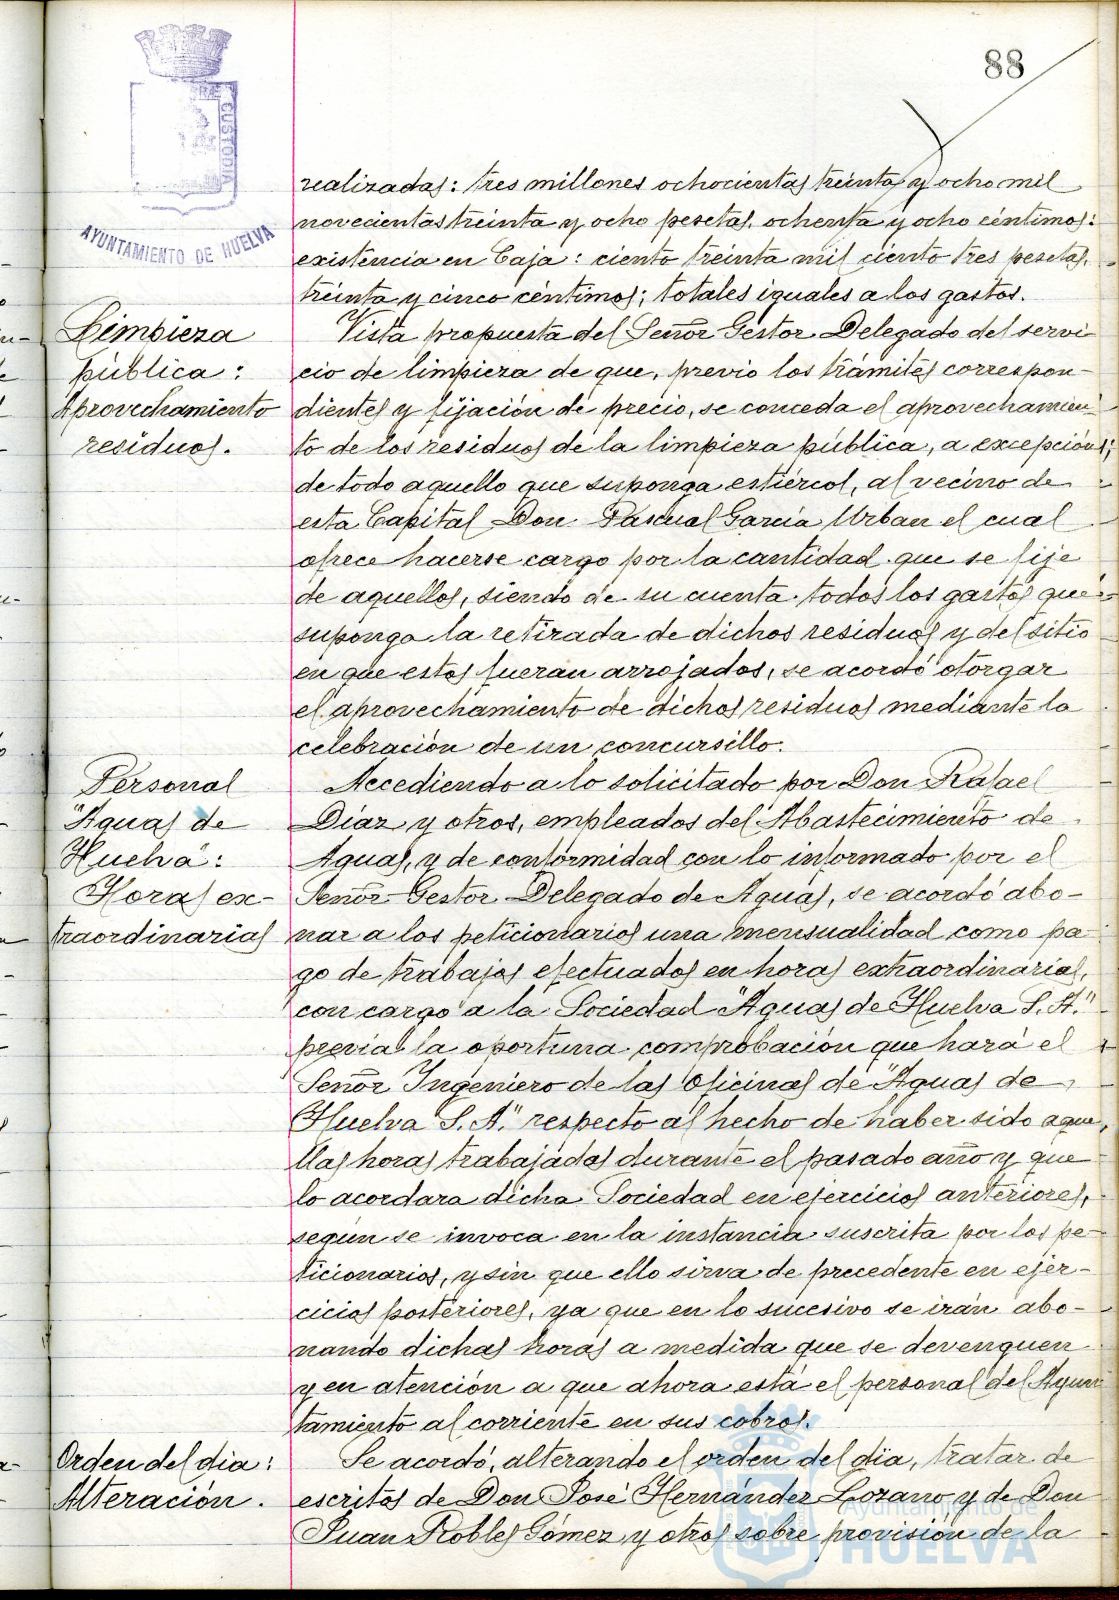 88
CUSTODIA
AYUNTAMIENTO DE HUELVA
realizadas: tres millones ochocientas treinta y ocho mil
novecientas treinta y ocho pesetas, ochenta y ocho céntimos:
existencia en Caja: ciento treinta mil ciento tres pesetas,
treinta y cinco céntimos; totales iguales a los gastos.
Limpieza
pública:
Aprovechamiento
residuos.
Vista propuesta del Señor Gestor Delegado del servi
cio de limpieza de que, previo los trámites correspon-
dientes y fijación de precio, se conceda el aprovechamien-
to de los residuos de la limpieza pública, a excepción,
de todo aquello que suponga estiércol, al vecino de
esta Capital Don Pascual García Urban el cual
ofrece hacerse cargo por la cantidad que se fije
de aquellos, siendo de su cuenta todos los gastos que
suponga la retirada de dichos residuos y del sitio
en que estos fueran arrojados, se acordó otorgar
el aprovechamiento de dichos residuos mediante la
celebración de un concursillo.
Personal
"Aguas de
Huelva":
Horas ex-
traordinarias
Accediendo a lo solicitado por Don Rafael
Díaz y otros, empleados del Abastecimiento de
Aguas, y de conformidad con lo informado por el
Señor Gestor Delegado de Aguas, se acordó abo-
nar a los peticionarios una mensualidad como pa-
go de trabajos efectuados en horas extraordinarias,
con cargo a la Sociedad "Aguas de Huelva S.A."
previa la oportuna comprobación que hará el
Señor Ingeniero de las oficinas de "Aguas de
Huelva S.A." respecto al hecho de haber sido aque,
llas horas trabajadas durante el pasado año y que
lo acordara dicha Sociedad en ejercicios anteriores,
según se invoca en la instancia suscrita por los pe-
ticionarios, y sin que ello sirva de precedente en ejer-
cicios posteriores, ya que en lo sucesivo se irán abo-
nando dichas horas a medida que se devenguen
y en atención a que ahora está el personal del Ayun
tamiento al corriente en sus cobros.
Orden del dia:
Alteración.
Se acordó, alterando el orden del día, tratar de
escritos de Don José Hernández Lozano y de Don
Juan Robles Gómez y otros sobre provisión de la
Ayuntamiento de
HUELVA